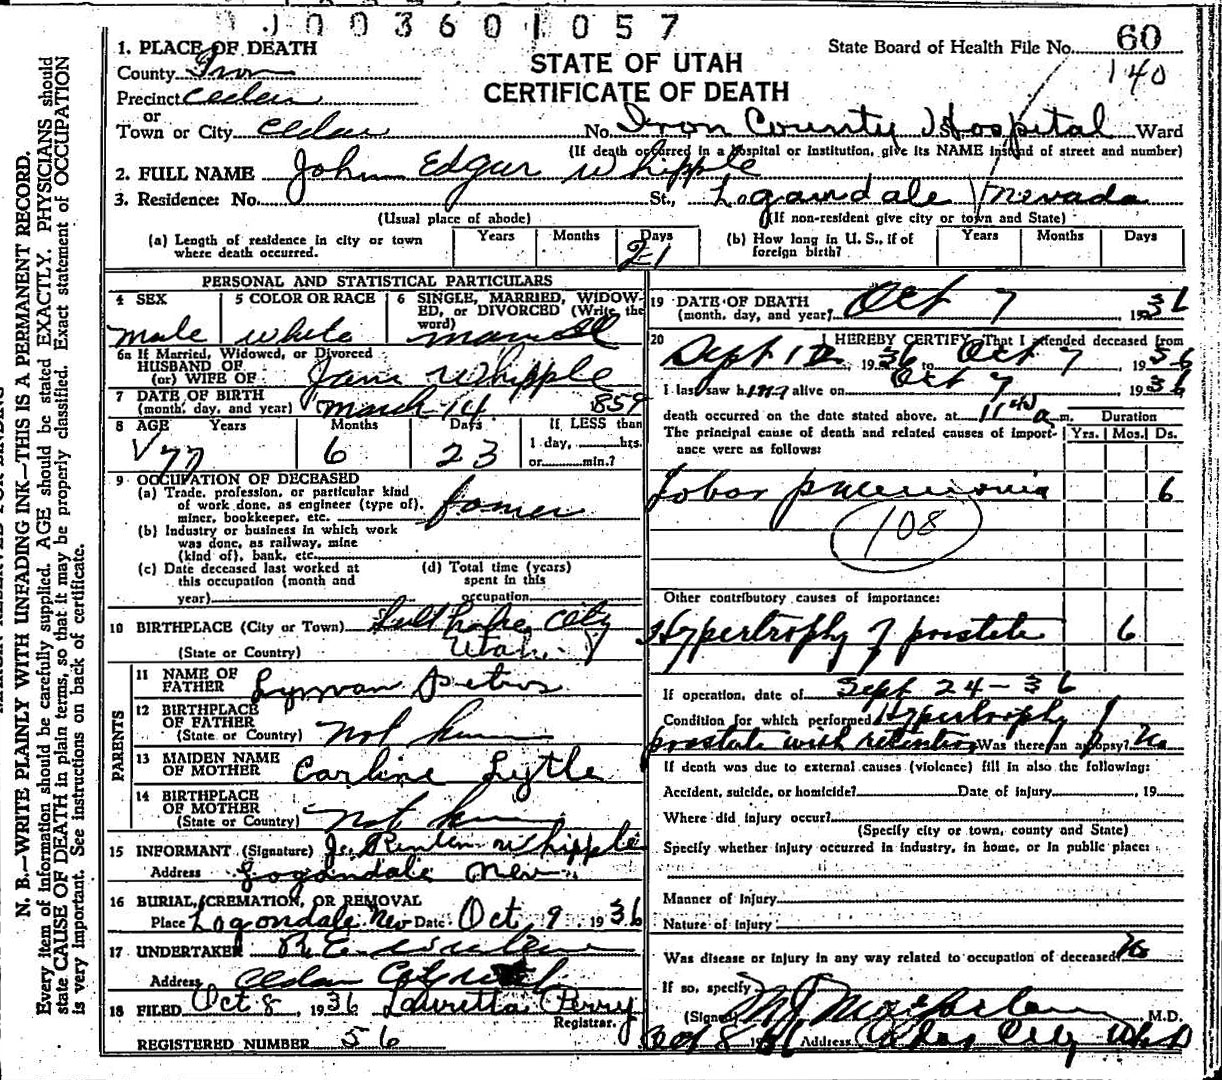 J 0 0 3 6 0 1 0 5 7
1. PLACE OF DEATH
County Iron
Precinct Cedar
or
Town or City Cedar
STATE OF UTAH
CERTIFICATE OF DEATH
State Board of Health File No. 60
140
No. Iron County Hospital St. Ward
(If death occurred in a hospital or institution, give its NAME instead of street and number)
2. FULL NAME John Edgar Whipple
3. Residence: No. St., Logandale Nevada
(Usual place of abode) (If non-resident give city or town and State)
(a) Length of residence in city or town where death occurred. Years Months Days 21
(b) How long in U. S., if of foreign birth? Years Months Days
PERSONAL AND STATISTICAL PARTICULARS
4 SEX male
5 COLOR OR RACE white
6 SINGLE, MARRIED, WIDOWED, or DIVORCED (Write the word) married
6a If Married, Widowed, or Divorced
HUSBAND OF
(or) WIFE OF Jane Whipple
7 DATE OF BIRTH
(month, day, and year) March 14 859
8 AGE Years Months Days If LESS than
77 6 23 1 day, hrs.
or min.?
9 OCCUPATION OF DECEASED
(a) Trade, profession, or particular kind
of work done, as engineer (type of),
miner, bookkeeper, etc. farmer
(b) Industry or business in which work
was done, as railway, mine
(kind of), bank, etc.
(c) Date deceased last worked at this occupation (month and year)
(d) Total time (years) spent in this occupation
10 BIRTHPLACE (City or Town) Salt Lake City
(State or Country) Utah
PARENTS
11 NAME OF
FATHER Lyman
12 BIRTHPLACE
OF FATHER
(State or Country) not
13 MAIDEN NAME
OF MOTHER Carline Lytle
14 BIRTHPLACE
OF MOTHER
(State or Country) not
15 INFORMANT (Signature) Whipple
Address Logandale Nev.
16 BURIAL, CREMATION, OR REMOVAL
Place Logondale Nev Date Oct 9 1936
17 UNDERTAKER
Address Cedar City
18 FILED Oct 8, 1936 Lauretta Perry
Registrar.
REGISTERED NUMBER 56
19 DATE OF DEATH
(month, day, and year) Oct 7 1936
20 I HEREBY CERTIFY, That I attended deceased from
Sept 12 1936 to Oct 7, 1936
I last saw him alive on Oct 7 1936
death occurred on the date stated above, at 11 40 a. m.
The principal cause of death and related causes of importance were as follows:
Duration
Yrs. Mos. Ds.
Lobar pneumonia 6
108
Other contributory causes of importance:
Hypertrophy of prostate 6
If operation, date of Sept 24-36
Condition for which performed Hypertrophy
prostate with retention Was there an autopsy? No
If death was due to external causes (violence) fill in also the following:
Accident, suicide, or homicide? Date of injury, 19
Where did injury occur?
(Specify city or town, county and State)
Specify whether injury occurred in industry, in home, or in public place:
Manner of injury
Nature of injury
Was disease or injury in any way related to occupation of deceased? No
If so, specify
(Signed) M.D.
Address Cedar City Utah
N. B.—WRITE PLAINLY WITH UNFADING INK—THIS IS A PERMANENT RECORD.
Every item of information should be carefully supplied. AGE should be stated EXACTLY. PHYSICIANS should
state CAUSE OF DEATH in plain terms, so that it may be properly classified. Exact statement of OCCUPATION
is very important. See instructions on back of certificate.